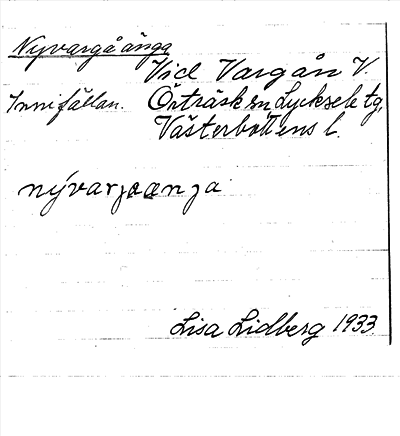 Nyvargåänga
Vid Vargån V.
Innifällan. Örträsk sn Lycksele tg,
Västerbottens l.
nývarjoænja
Lisa Lidberg 1933